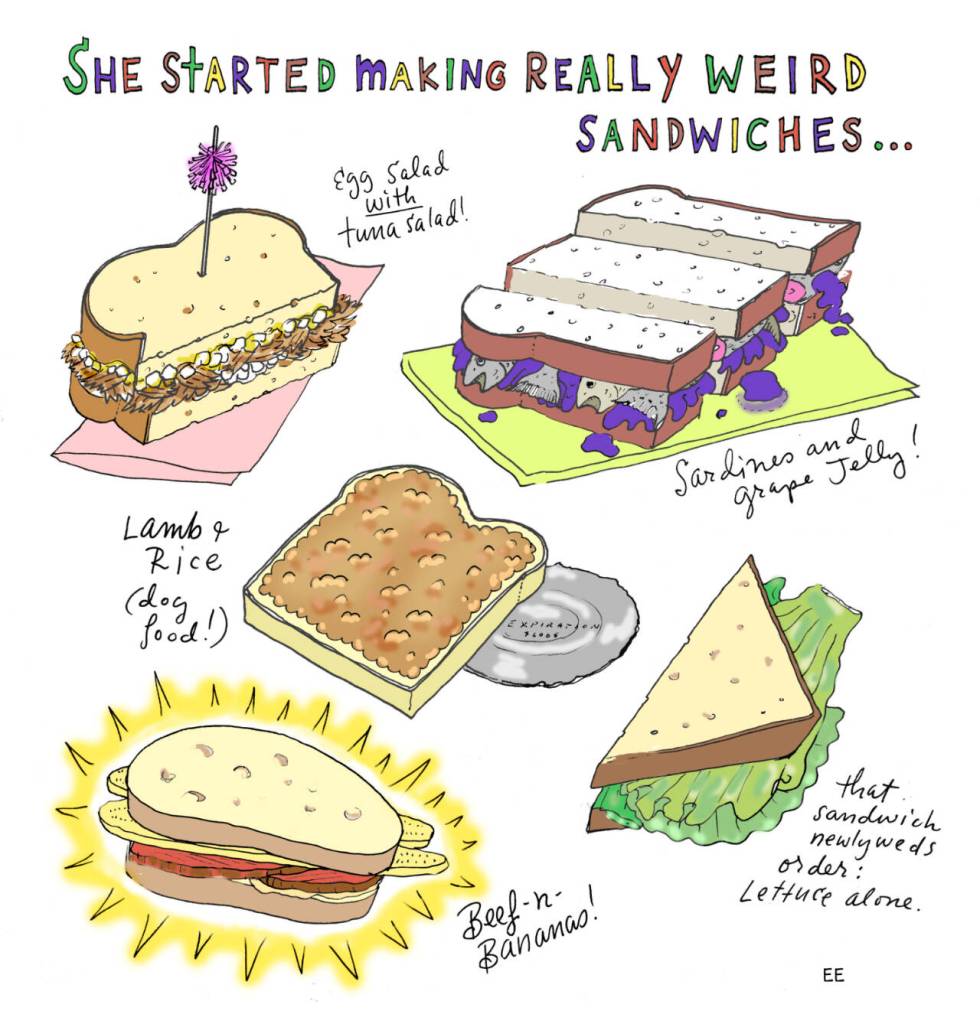 SHE STARTED MAKING REALLY WEIRD
SANDWICHES...
Egg Salad
with
tuna salad!
Sardines and
grape Jelly!
Lamb &
Rice
(dog
food!)
EXPIRATION
Beef-n-
Bananas!
that
sandwich
newlyweds
order:
Lettuce alone.
EE